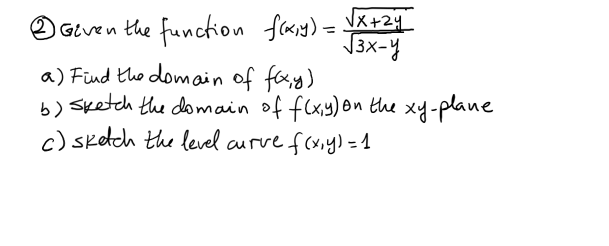 ② Given the function f(x,y) = √(x+2y) / √(3x-y)
a) Find the domain of f(x,y)
b) Sketch the domain of f(x,y) on the xy-plane
c) sketch the level curve f(x,y) = 1